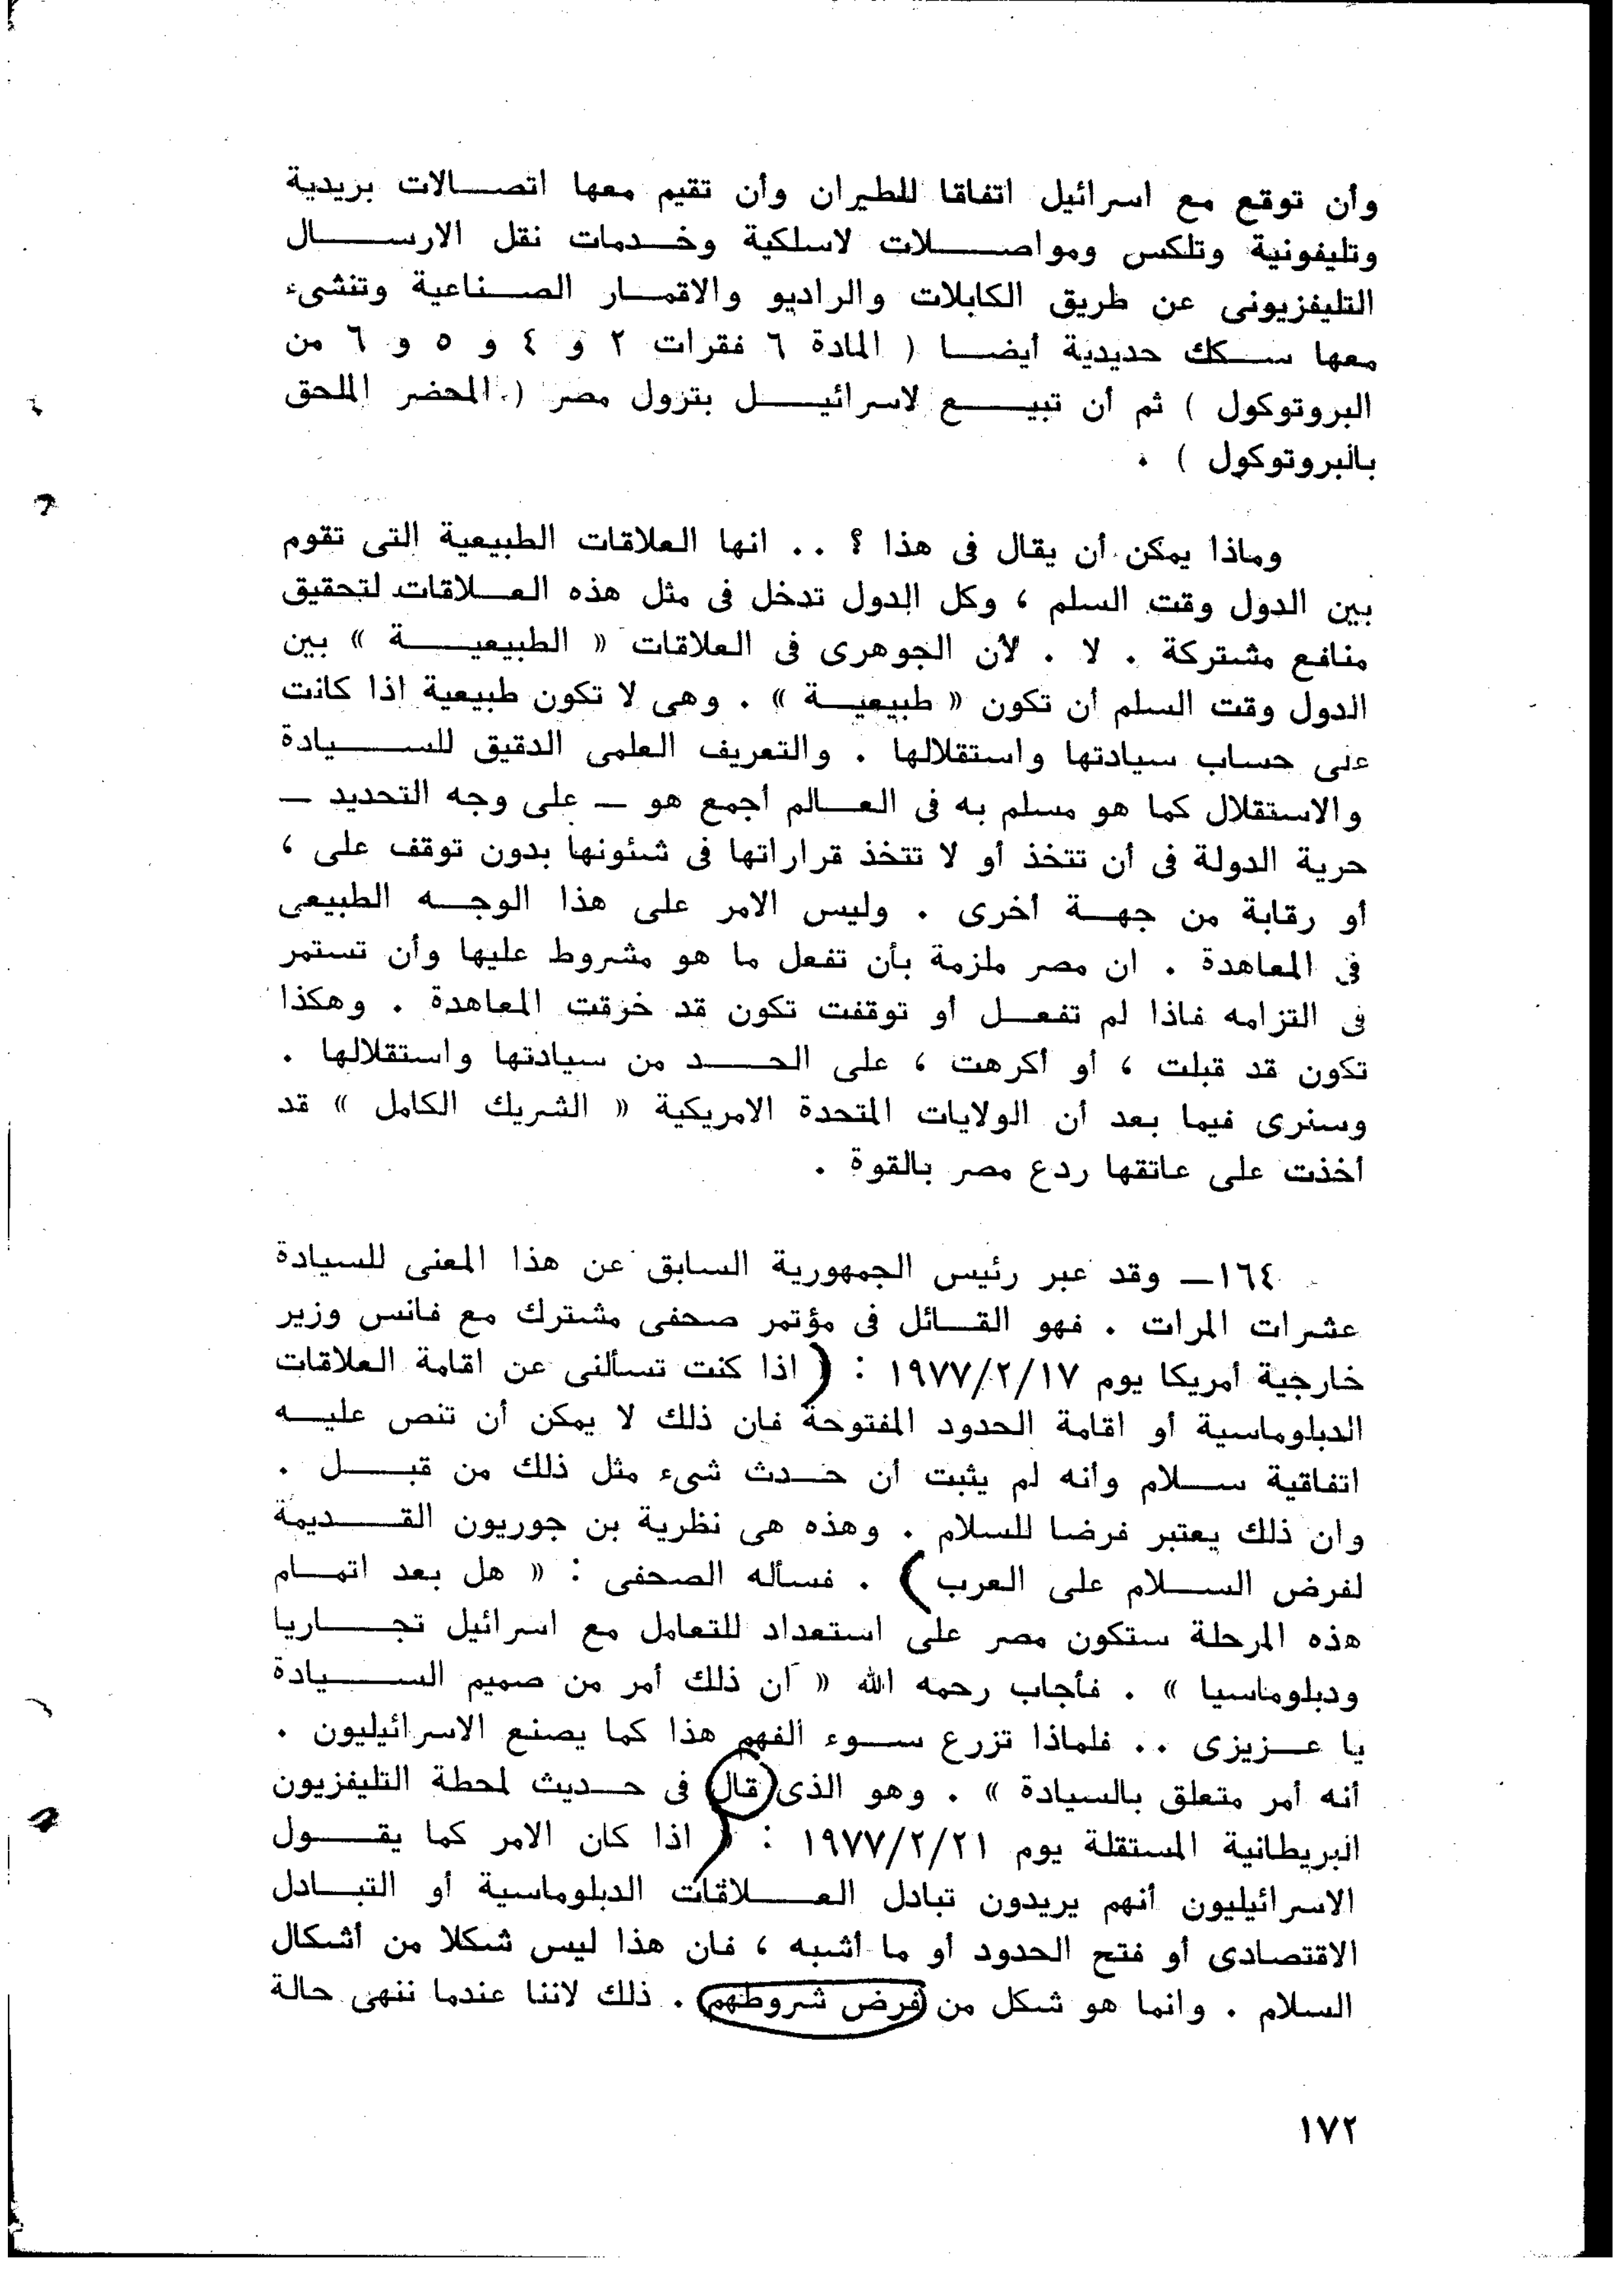 وأن توقع مع اسرائيل اتفاقا للطيران وأن تقيم معها اتصالات بريدية
وتليفونية وتلكس ومواصلات لاسلكية وخدمات نقل الارسال
التليفزيونى عن طريق الكابلات والراديو والاقمار الصناعية وتنشىء
معها سكك حديدية أيضا ( المادة ٦ فقرات ٢ و ٤ و ٥ و ٦ من
البروتوكول ) ثم أن تبيع لاسرائيل بتزول مصر ( المحضر الملحق
بالبروتوكول ) .
وماذا يمكن أن يقال فى هذا ؟ .. انها العلاقات الطبيعية التى تقوم
بين الدول وقت السلم ، وكل الدول تدخل فى مثل هذه العلاقات لتحقيق
منافع مشتركة . لا . لأن الجوهرى فى العلاقات « الطبيعية » بين
الدول وقت السلم أن تكون « طبيعية » . وهى لا تكون طبيعية اذا كانت
على حساب سيادتها واستقلالها . والتعريف العلمى الدقيق للسيادة
والاستقلال كما هو مسلم به فى العالم أجمع هو — على وجه التحديد —
حرية الدولة فى أن تتخذ أو لا تتخذ قراراتها فى شئونها بدون توقف على ،
أو رقابة من جهة أخرى . وليس الامر على هذا الوجه الطبيعى
فى المعاهدة . ان مصر ملزمة بأن تفعل ما هو مشروط عليها وأن تستمر
فى التزامه فاذا لم تفعل أو توقفت تكون قد خرقت المعاهدة . وهكذا
تكون قد قبلت ، أو أكرهت ، على الحد من سيادتها واستقلالها .
وسنرى فيما بعد أن الولايات المتحدة الامريكية « الشريك الكامل » قد
أخذت على عاتقها ردع مصر بالقوة .
١٦٤— وقد عبر رئيس الجمهورية السابق عن هذا المعنى للسيادة
عشرات المرات . فهو القائل فى مؤتمر صحفى مشترك مع فانس وزير
خارجية أمريكا يوم ١٩٧٧/٢/١٧ : ( اذا كنت تسألنى عن اقامة العلاقات
الدبلوماسية أو اقامة الحدود المفتوحة فان ذلك لا يمكن أن تنص عليه
اتفاقية سلام وأنه لم يثبت أن حدث شىء مثل ذلك من قبل .
وان ذلك يعتبر فرضا للسلام . وهذه هى نظرية بن جوريون القديمة
لفرض السلام على العرب ) . فسأله الصحفى : « هل بعد اتمام
هذه المرحلة ستكون مصر على استعداد للتعامل مع اسرائيل تجاريا
ودبلوماسيا » . فأجاب رحمه الله « ان ذلك أمر من صميم السيادة
يا عزيزى .. فلماذا تزرع سوء الفهم هذا كما يصنع الاسرائيليون .
أنه أمر متعلق بالسيادة » . وهو الذى قال فى حديث لمحطة التليفزيون
البريطانية المستقلة يوم ١٩٧٧/٢/٢١ : ( اذا كان الامر كما يقول
الاسرائيليون أنهم يريدون تبادل العلاقات الدبلوماسية أو التبادل
الاقتصادى أو فتح الحدود أو ما أشبه ، فان هذا ليس شكلا من أشكال
السلام . وانما هو شكل من فرض شروطهم . ذلك لاننا عندما ننهى حالة
١٧٢